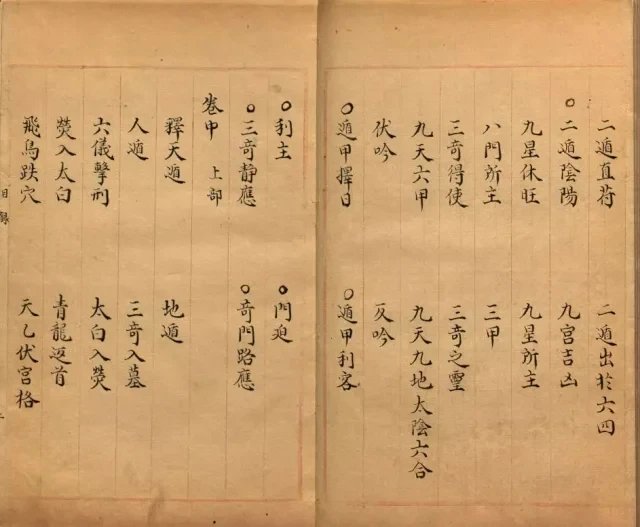 二遁直符 二遁出於六四
○二遁陰陽 九宫吉凶
九星休旺 九星所主
八門所主 三甲
三竒得使 三竒之靈
九天六甲 九天九地太陰六合
伏吟 反吟
○遁甲擇日 ○遁甲利客
○利主 ○門迫
○三竒静應 ○竒門路應
卷中 上部
釋天遁 地遁
人遁 三竒入墓
六儀擊刑 太白入熒
熒入太白 青龍返首
飛鳥跌穴 天乙伏宫格
目録